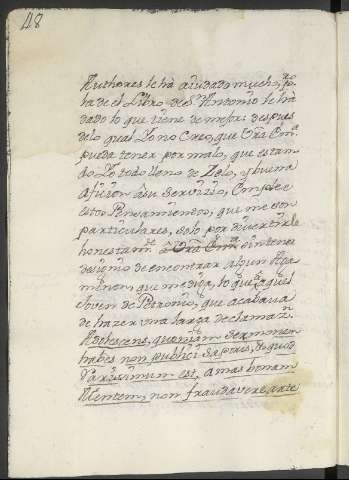 48
Authores le hà aiudado mucho,
ha de el Libro de S. Antonio le hà
dado lo que tiene de mejor: despues
delo qual Yo no Creo, que Vrã Emª
pueda tener por malo, que estan
do Yo todo lleno de Zelo, y buena
aficion à su servizio, Emplee
estos Pensamientos, que me son
particulares, solo por divertirle
honestamte à Vrã Emª sin tener
designio de encontrar algun Aga
menon, que me diga, lo que à quel
Joven de Petronio, que acabava
de hazer una larga declamazn.
Adolescens, quoniam sermonem
habes non publici saporis, & quod
rarissimum est, amas bonam
Mentem, non fraudavere arte